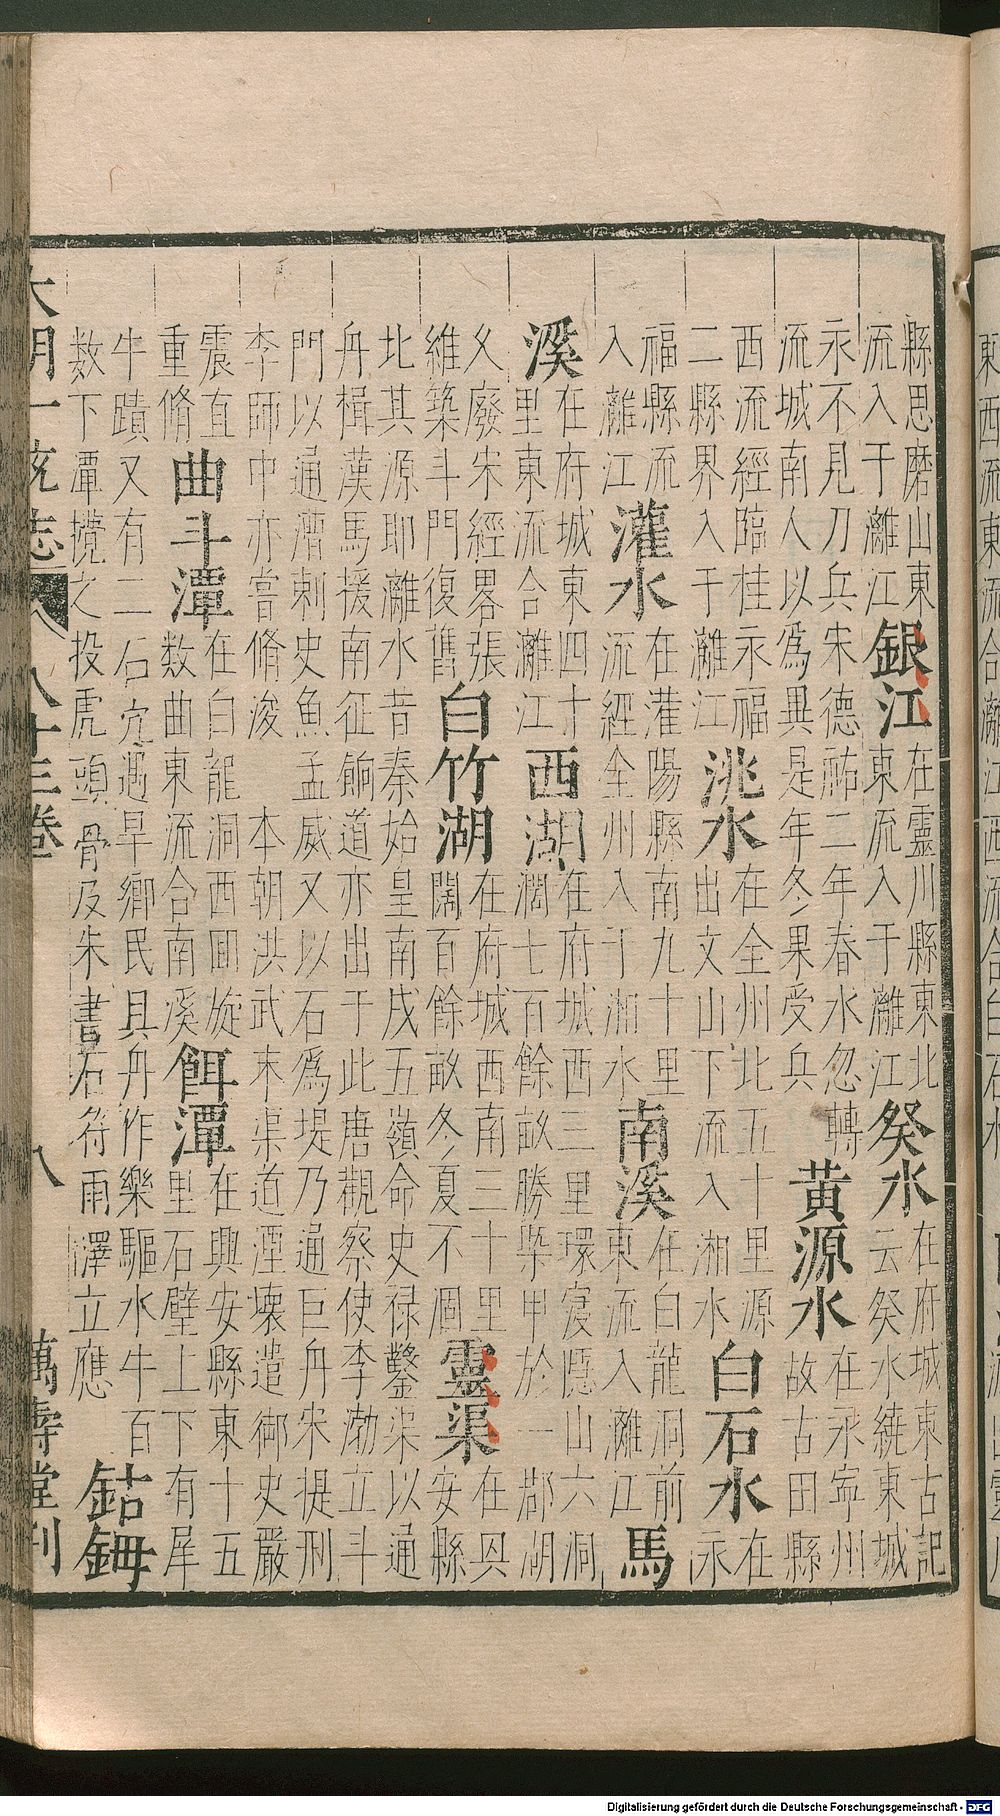 縣思磨山東
流入于灕江
銀江
在靈川縣東北
東流入于灕江
癸水
在府城東古記
云癸水繞東城
永不見刀兵宋德祐二年春水忽轉
流城南人以為異是年冬果受兵
黃源水
在永寧州
故古田縣
西流經臨桂永福
二縣界入于灕江
洮水
在全州北五十里源
出文山下流入湘水
白石水
在
永
福縣流
入灕江
灌水
在灌陽縣南九十里
流經全州入于湘水
南溪
在白龍洞前
東流入灕江
馬
溪
在府城東四十
里東流合灕江
西湖
在府城西三里環寖隱山六洞
濶七百餘畝勝槩甲於一郡湖
乆廢宋經畧張
維築斗門復舊
白竹湖
在府城西南三十里
闊百餘畝冬夏不涸
靈渠
在㒷
安縣
北其源即灕水昔秦始皇南戍五嶺命史禄鑿渠以通
舟楫漢馬援南征餉道亦出于此唐觀察使李渤立斗
門以通漕刺史魚孟威又以石為堤乃通巨舟宋提刑
李師中亦嘗脩浚 本朝洪武末渠道湮壊遣御史嚴
震直
重脩
曲斗潭
在白龍洞西囬旋
數曲東流合南溪
餌潭
在興安縣東十五
里石壁上下有犀
牛蹟又有二石穴遇旱鄉民具舟作樂驅水牛百
數下潭攪之投虎頭骨及朱書石符雨澤立應
鈷鉧
大明一統志 八十三卷 八 萬壽堂刊
東西流東流合灕江西流合白石水
Digitalisierung gefördert durch die Deutsche Forschungsgemeinschaft - DFG